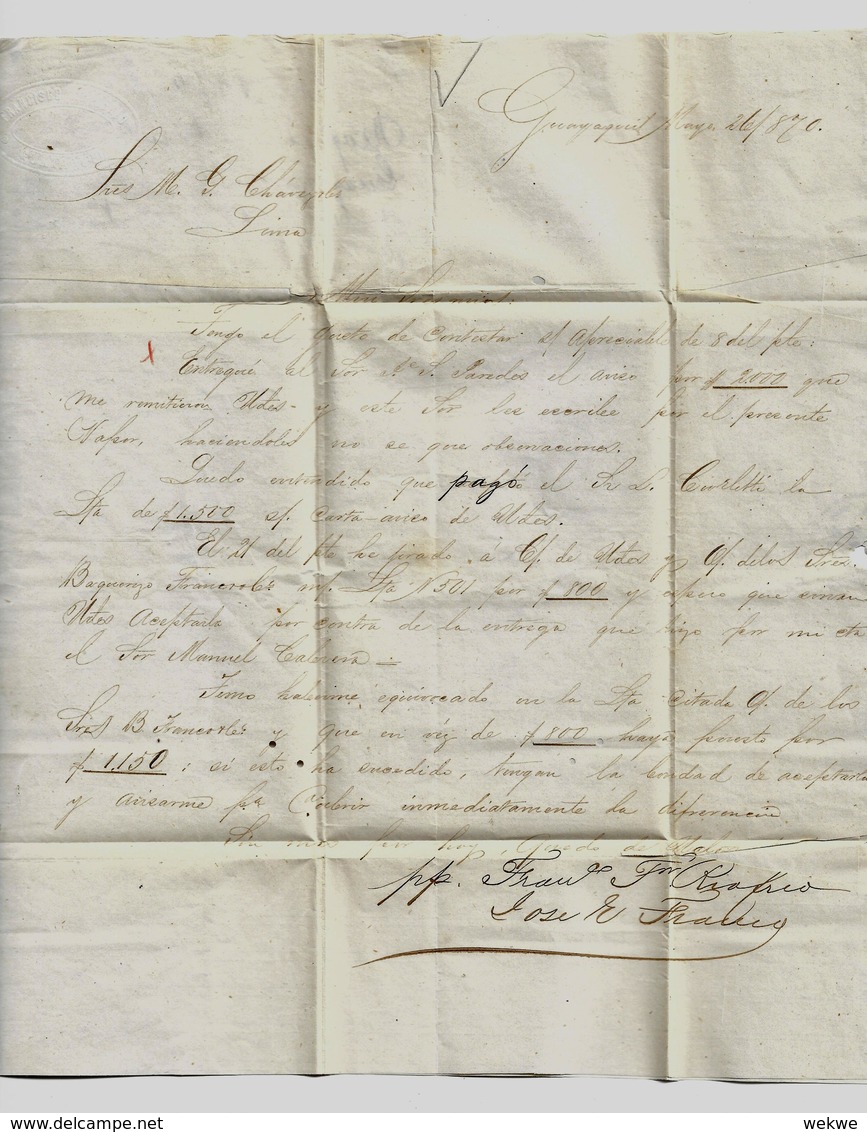 Guayaquil Mayo 26/870.
Sres M. G. Cháves
Lima
Tengo el gusto de contestar s/ apreciable de 8 del pte:
Entregué al Sor S. Paredes el aviso por $ 2.000 que
me remitieron Udes- y este Sor les escribe por el presente
Vapor, haciendoles no se que observaciones.
Quedo entendido que pagó el Sr L. la
Lta de $ 1.500 s/. carta-aviso de Udes.
El 21 del pte he tirado á C/. de Udes y O/. de los Sres.
Baquerizo Franco Lta N 501 por $ 800 y espero que
Udes Aceptarla por contra de la entrega que hizo por mi cta
el Sor Manuel
Temo haberme equivocado en la Lta citada O/. de los
Sres B Franco y que en véz de $ 800 haya puesto por
$ 1.150 : si esto ha sucedido, tengan la bondad de aceptarla
y avisarme pa cubrir inmediatamente la diferencia
Sin mas por hoy, Quedo de Udes
pp. Franco
Jose Franco
wekwe